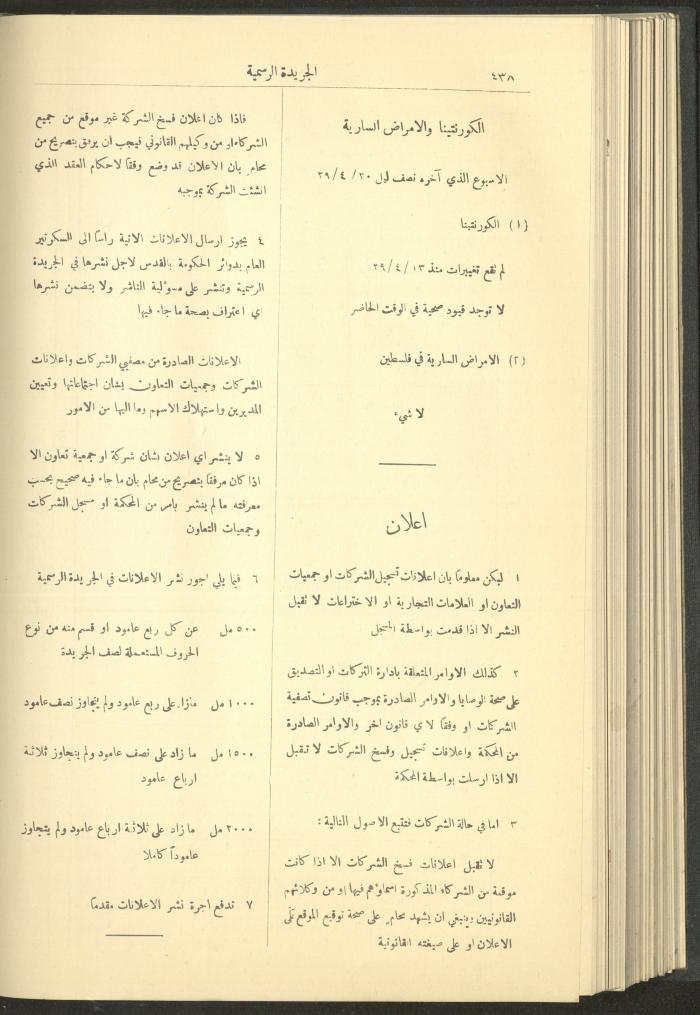 ٤٣٨
الجريدة الرسمية
الكورنتينا والامراض السارية
الاسبوع الذي آخره نصف ليل ٢٠/ ٤/ ٢٩
(١) الكورنتينا
لم تقع تغييرات منذ ١٣/ ٤/ ٢٩
لا توجد قيود صحية في الوقت الحاضر
(٢) الامراض السارية في فلسطين
لا شيء
اعلان
١ ليكن معلوما بان اعلانات تسجيل الشركات او جمعيات
التعاون او العلامات التجارية او الاختراعات لا تقبل
النشر الا اذا قدمت بواسطة المسجل
٢ كذلك الاوامر المتعلقة بادارة التركات او التصديق
على صحة الوصايا والاوامر الصادرة بموجب قانون تصفية
الشركات او وفقا لاي قانون اخر والاوامر الصادرة
من المحكمة واعلانات تسجيل وفسخ الشركات لا تقبل
الا اذا ارسلت بواسطة المحكمة
٣ اما في حالة الشركات فتتبع الاصول التالية :
لا تقبل اعلانات فسخ الشركات الا اذا كانت
موقعة من الشركاء المذكورة اسماؤهم فيها او من وكلائهم
القانونيين وينبغي ان يشهد محام على صحة توقيع الموقع على
الاعلان او على صيغته القانونية
فاذا كان اعلان فسخ الشركة غير موقع من جميع
الشركاء او من وكيلهم القانوني فيجب ان يرفق بتصريح من
محام بان الاعلان قد وضع وفقا لاحكام العقد الذي
انشئت الشركة بموجبه
٤ يجوز ارسال الاعلانات الاتية راسا الى السكرتير
العام بدوائر الحكومة بالقدس لاجل نشرها في الجريدة
الرسمية وتنشر على مسؤلية الناشر ولا يتضمن نشرها
اي اعتراف بصحة ما جاء فيها
الاعلانات الصادرة من مصفيي الشركات واعلانات
الشركات وجمعيات التعاون بشان اجتماعاتها وتعيين
المديرين واستهلاك الاسهم وما اليها من الامور
٥ لا ينشر اي اعلان بشان شركة او جمعية تعاون الا
اذا كان مرفقا بتصريح من محام بان ما جاء فيه صحيح بحسب
معرفته ما لم ينشر بامر من المحكمة او مسجل الشركات
وجمعيات التعاون
٦ فيما يلي اجور نشر الاعلانات في الجريدة الرسمية
٥٠٠ مل عن كل ربع عامود او قسم منه من نوع
الحروف المستعملة لصف الجريدة
١٠٠٠ مل مازاد على ربع عامود ولم يتجاوز نصف عامود
١٥٠٠ مل ما زاد على نصف عامود ولم يتجاوز ثلاثة
ارباع عامود
٢٠٠٠ مل ما زاد على ثلاثة ارباع عامود ولم يتجاوز
عامودا كاملا
٧ تدفع اجرة نشر الاعلانات مقدما